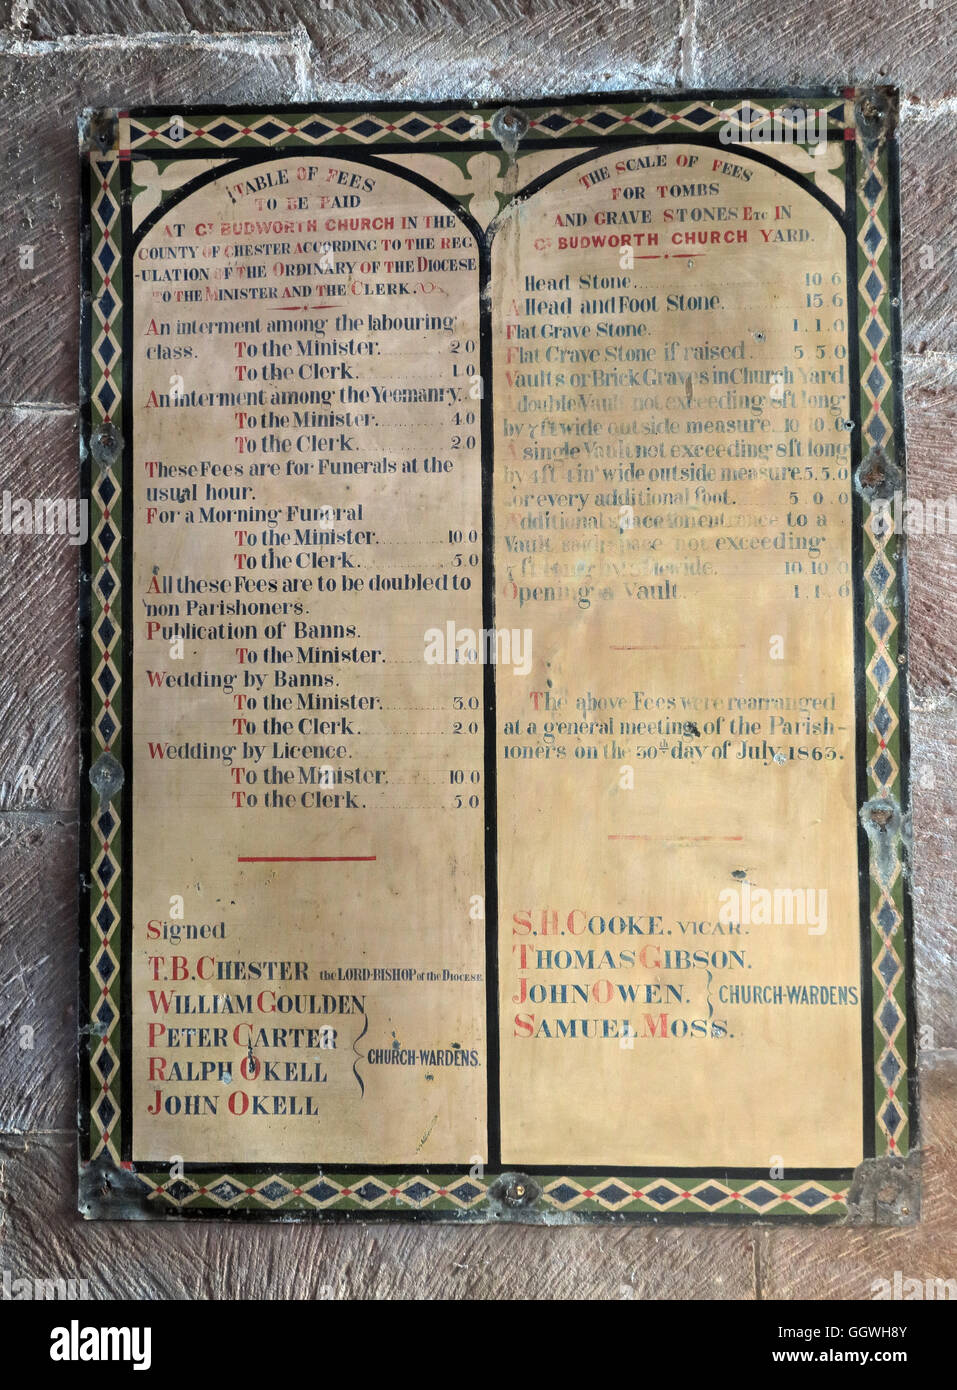 TABLE OF FEES
TO BE PAID
AT Gᵀ BUDWORTH CHURCH IN THE
COUNTY OF CHESTER ACCORDING TO THE REG
-ULATION OF THE ORDINARY OF THE DIOCESE
TO THE MINISTER AND THE CLERK.
An interment among the labouring
class. To the Minister. 2 0
To the Clerk. 1.0
An interment among the Yeomanry.
To the Minister. 4.0
To the Clerk. 2.0
These Fees are for Funerals at the
usual hour.
For a Morning Funeral
To the Minister. 10.0
To the Clerk. 5.0
All these Fees are to be doubled to
non Parishoners.
Publication of Banns.
To the Minister. 1.0
Wedding by Banns.
To the Minister. 3.0
To the Clerk. 2.0
Wedding by Licence.
To the Minister. 10.0
To the Clerk. 5.0
Signed
T.B. CHESTER the LORD-BISHOP of the DIOCESE.
WILLIAM GOULDEN
PETER CARTER
CHURCH-WARDENS.
RALPH OKELL
JOHN OKELL
THE SCALE OF FEES
FOR TOMBS
AND GRAVE STONES ETC IN
Gᵀ BUDWORTH CHURCH YARD.
A Head Stone. 10 6
A Head and Foot Stone. 15 6
Flat Grave Stone. 1.1.0
Flat Grave Stone if raised. 5 5.0
Vaults or Brick Graves in Church Yard
A double Vault not exceeding 8ft long
by 7ft wide outside measure. 10 10.0
A single Vault not exceeding 8ft long
by 4ft 4inˢ wide outside measure. 5.5.0
For every additional foot. 5.0.0
Additional space for entrance to a
Vault said space not exceeding
7ft long by wide. 10.10.0
Opening a Vault. 1.1.0
The above Fees were rearranged
at a general meeting of the Parish-
ioners on the 30th day of July, 1863.
S.H. COOKE. VICAR.
THOMAS GIBSON.
JOHN OWEN. CHURCH-WARDENS
SAMUEL MOSS.
alamy stock photo
GGWH8Y
www.alamy.com